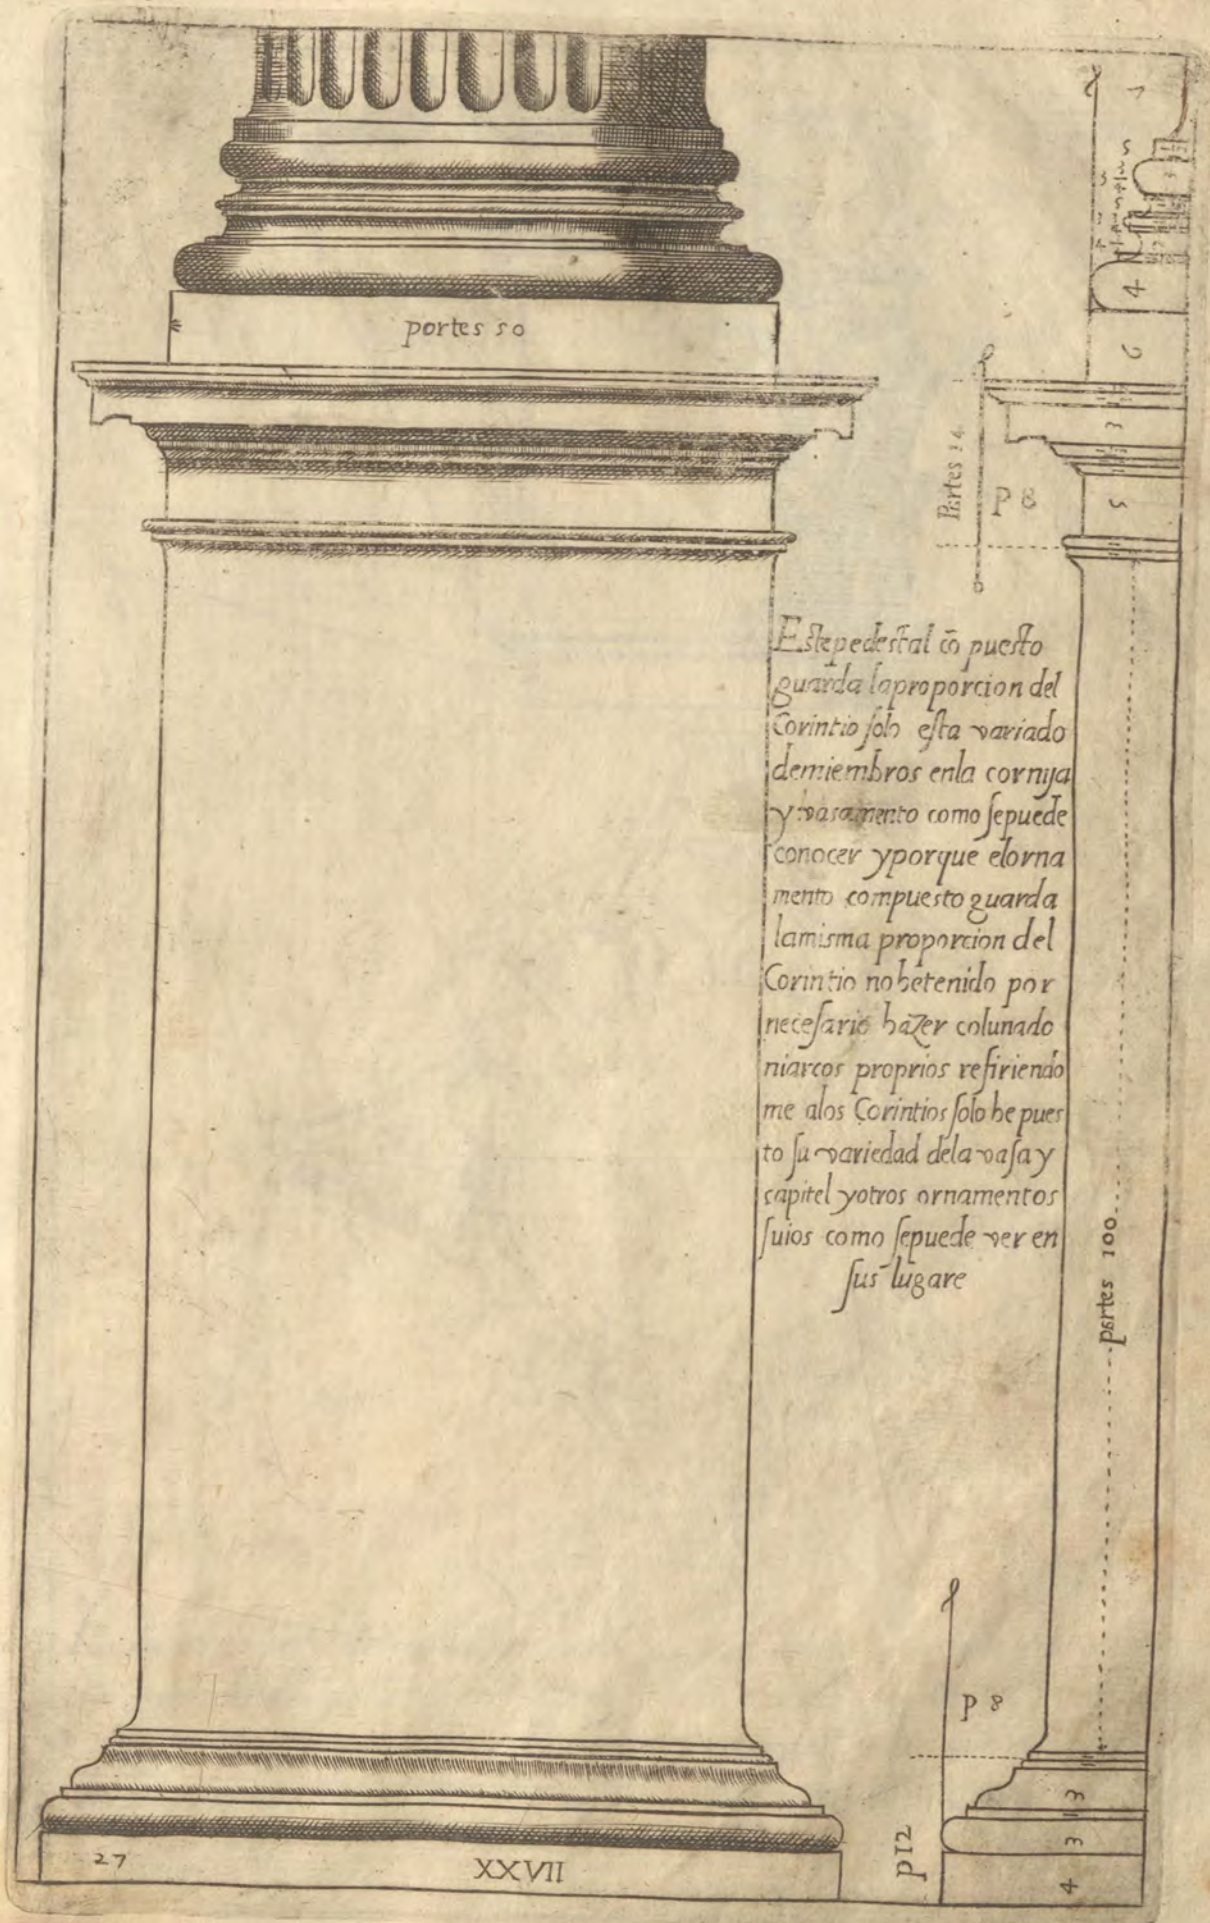 portes 50
Partes 14
P 8
7
3
4
6
3
5
Este pedestal cō puesto
guarda la proporcion del
Corintio ſolo eſta variado
demiembros enla cornija
y vasamento como ſepuede
conocer yporque elorna
mento compuesto guarda
lamisma proporcion del
Corintio no hetenido por
neceſario hazer colunado
niarcos proprios refiriendo
me alos Corintios ſolo he pues
to ſu variedad dela vaſa y
capitel yotros ornamentos
ſuios como ſepuede ver en
ſus lugare
partes 100
P 8
p12
3
1
3
4
27
XXVII